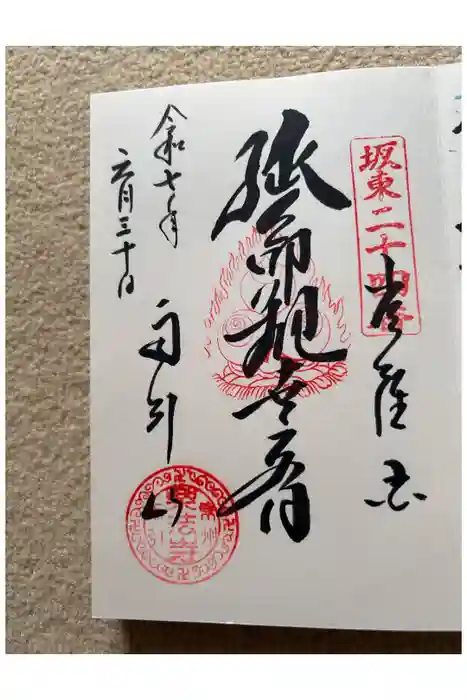 坂東二十四番
常陸国
延命観世音
令和七年
六月三十日
雨引山
常州
樂法寺